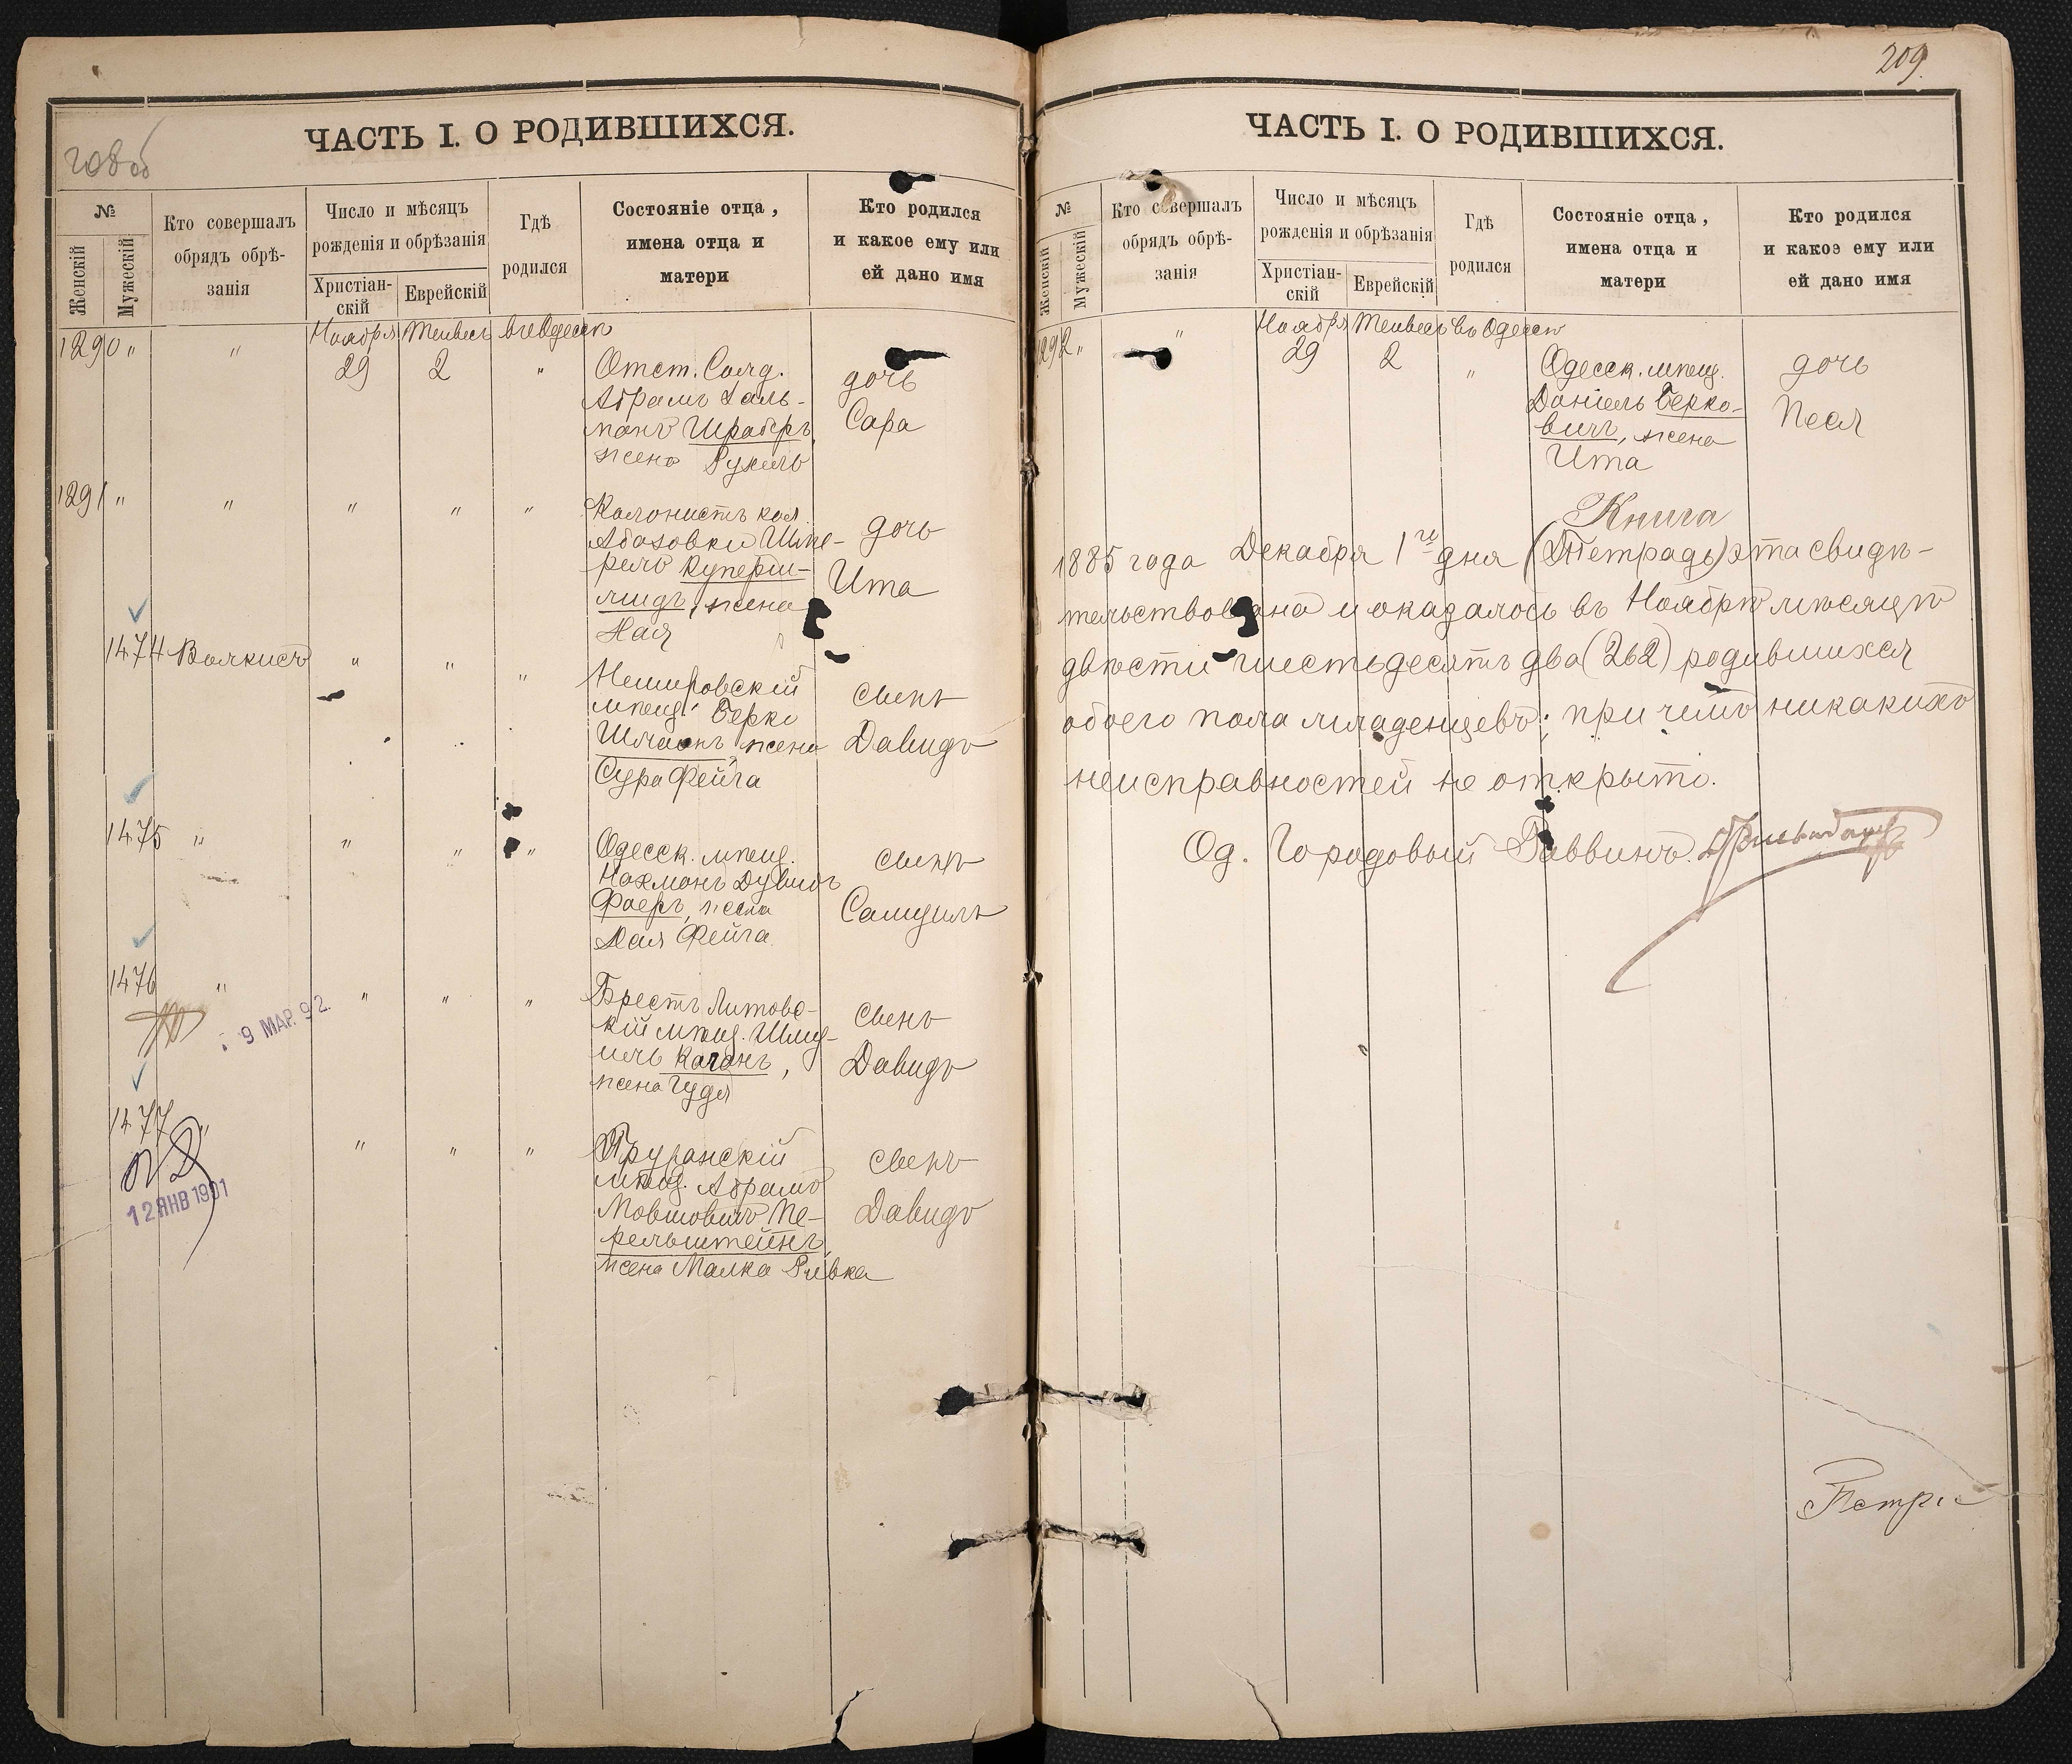 208 об
ЧАСТЬ I. О РОДИВШИХСЯ.
№
Женскій
Мужескій
Кто совершалъ
обрядъ обрѣ-
занія
Число и мѣсяцъ
рожденія и обрѣзанія
Христіан-
скій
Еврейскій
Гдѣ
родился
Состояніе отца,
имена отца и
матери
Кто родился
и какое ему или
ей дано имя
Ноября Тейвесъ въ Одессѣ
1290 " " 29 2 "
Отст. Солд.
Абрамъ Галь-
манъ Шрабертъ
жена Рухель
дочь
Сара
1291 " " " " "
Колонистъ кол.
Абазовки Шпе-
рель Куперш-
мидъ, жена
Хая
дочь
Ита
1474 Волкисъ " " "
Немировскій
мѣщ. Берко
Шлаенъ, жена
Сура Фейга
сынъ
Давидъ
1475 " " " "
Одесск. мѣщ.
Нахманъ Дувидъ
Фаеръ, жена
Хая Фейга
сынъ
Самуилъ
1476 " " " "
9 МАР. 92.
Брестъ Литовс-
кій мѣщ. Шму-
иль Каганъ,
жена Гудя
сынъ
Давидъ
1477 " " " "
12 ЯНВ 1901
Пружанскій
мѣщ. Абрамъ
Мовшовичъ Пе-
рельштейнъ,
жена Малка Ривка
сынъ
Давидъ
209.
ЧАСТЬ I. О РОДИВШИХСЯ.
№
Женскій
Мужескій
Кто совершалъ
обрядъ обрѣ-
занія
Число и мѣсяцъ
рожденія и обрѣзанія
Христіан-
скій
Еврейскій
Гдѣ
родился
Состояніе отца,
имена отца и
матери
Кто родился
и какоэ ему или
ей дано имя
Ноября Тейвесъ въ Одессѣ
1292 " " 29 2 "
Одесск. мѣщ.
Даніель Берко-
вичъ, жена
Ита
дочь
Песя
Книга
1885 года Декабря 1го дня (Тетрадь) эта свидѣ-
тельствована и оказалось въ Ноябрѣ мѣсяцѣ
двѣсти шестьдесятъ два (262) родившихся
обоего пола младенцевъ; при чемъ никакихъ
неисправностей не открыто.
Од. Городовый Раввинъ